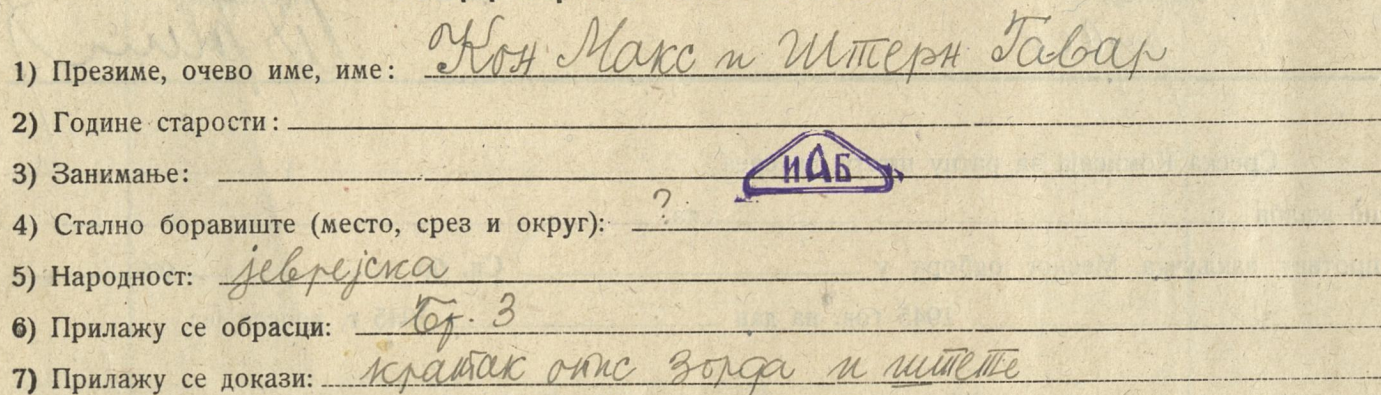 1) Презиме, очево име, име: Кон Макс и Штерн Гавар
2) Године старости:
3) Занимање:
ИАБ
4) Стално боравиште (место, срез и округ): ?
5) Народност: јеврејска
6) Прилажу се обрасци: Бр. 3
7) Прилажу се докази: кратак опис и штете